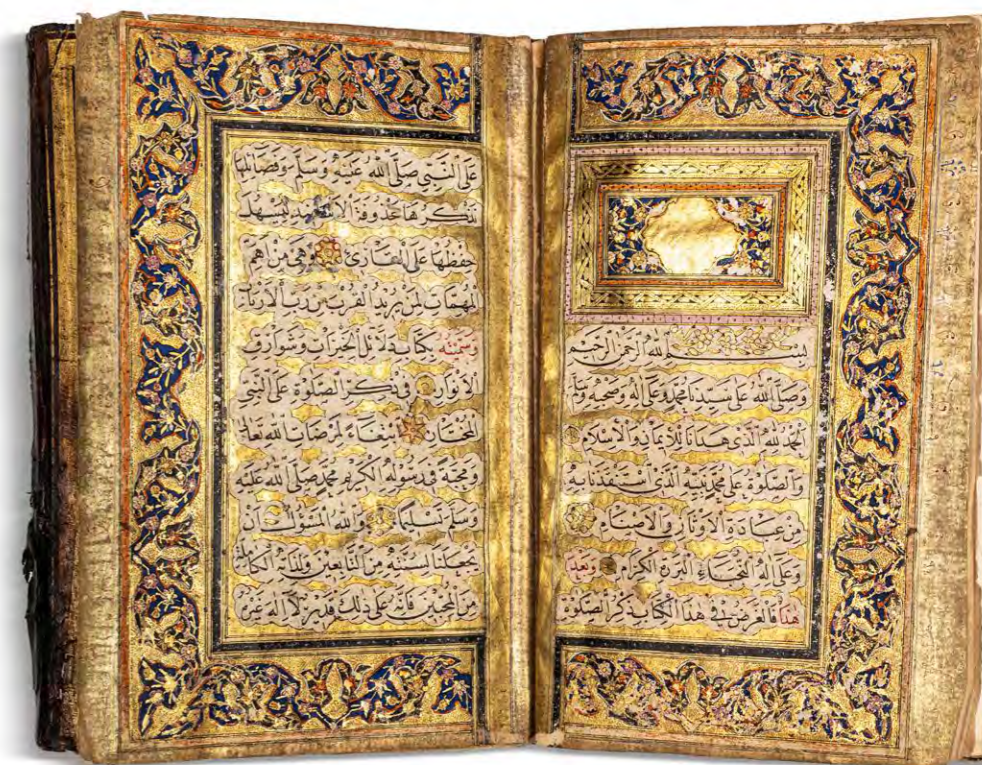 بسم الله الرحمن الرحيم
وصلى الله على سيدنا محمد وعلى آله وصحبه وسلم
الحمد لله الذي هدانا للايمان والاسلام
والصلوة على محمد نبيه الذي استنقذنا به
من عبادة الاوثان والاصنام
وعلى آله النجباء البررة الكرام وبعد
هذا فالغرض في هذا الكتاب ذكر الصلوة
على النبي صلى الله عليه وسلم وفضائلها
نذكرها محذوفة الاسانيد ليسهل
حفظها على القارئ وهي من اهم
المهمات لمن يريد القرب من رب الارباب
وسميته بكتاب دلائل الخيرات وشوارق
الانوار في ذكر الصلوة على النبي
المختار ابتغاء لمرضات الله تعالى
ومحبة في رسوله الكريم محمد صلى الله عليه
وسلم تسليما والله المسؤل ان
يجعلنا لسنته من التابعين ولذاته الكاملة
من المحبين فانه على ذلك قدير لا اله غيره